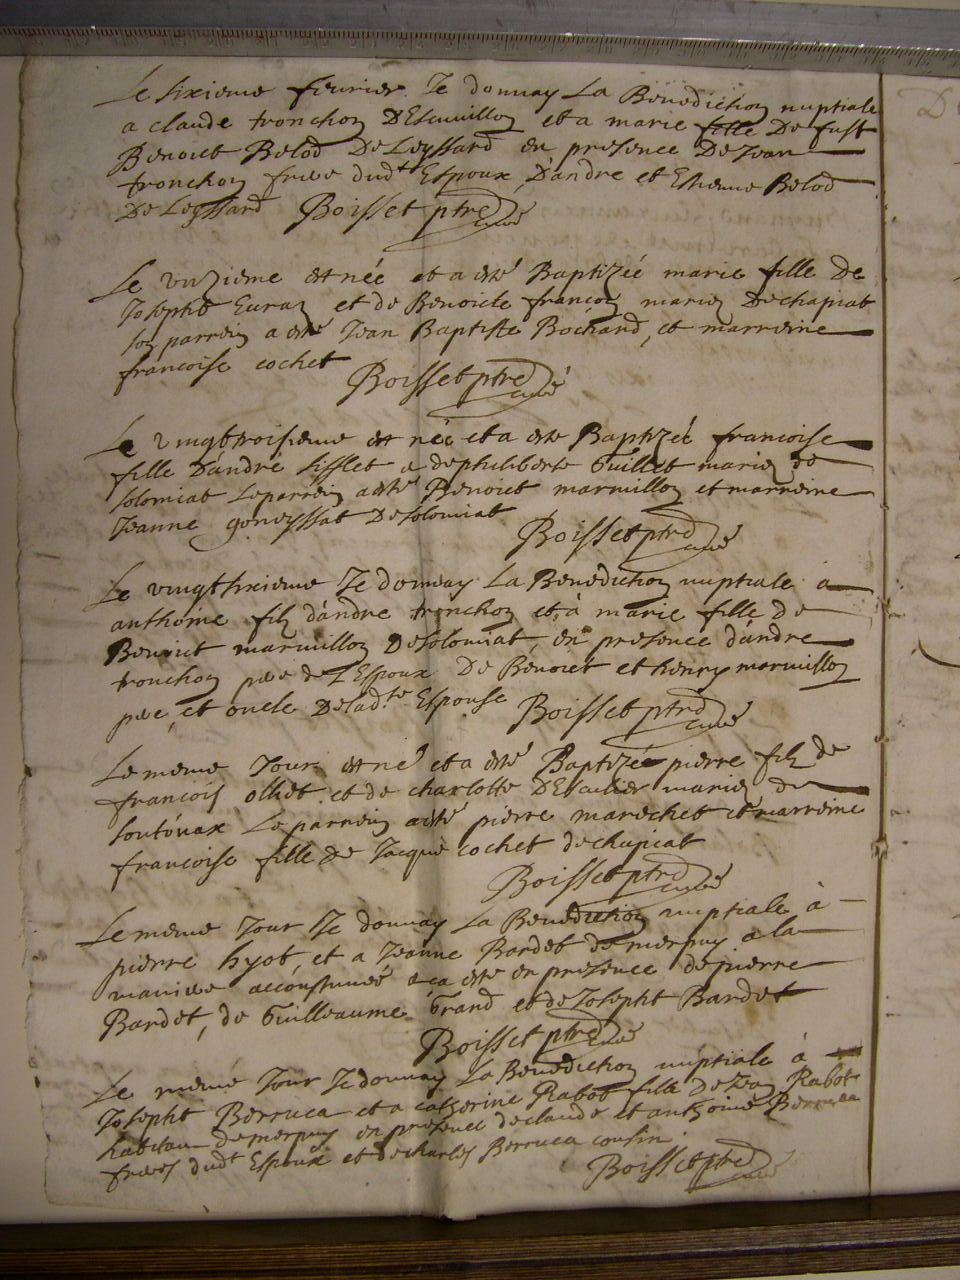 Le sixieme feurier Je donnay La Benediction nuptiale
a claude tronchon DEscuvillon et a marie fille De fust
Benoict Belod De Leyssard en presence De Jean
tronchon frere dudt Espoux, D'andre et Estienne Belod
De Leyssard Boisset ptre curé
Le unzieme est née et a esté Baptizée marie fille de
Josepht Euraz et de Benoicte françon mariez De chapiat
son parrein a esté Jean Baptiste Bochand, et marreine
francoise cochet Boisset ptre curé
Le vingttroisieme est née et a este Baptizée francoise
fille D'andré sifflet a de philiberte Guillet mariez de
solomiat Le parrein a esté Benoict marmillon et marreine
Jeanne geneyssat De solomiat Boisset ptre curé
Le vingtsixieme Je donnay La Benediction nuptiale a
anthoine filz d'andre tronchon et à marie fille de
Benoict marmillon De solomiat, en presence d'andre
tronchon pere de l'Espoux De Benoict et henry marmillon
pere, et oncle De ladte Espouse Boisset ptre curé
Le meme Jour est né et a esté Baptizée pierre filz de
francois olliet et de charlotte mariez de
soutonax Le parrein a esté pierre marechet et marreine
francoise fille de Jacque cochet de chapiat
Boisset ptre curé
Le meme Jour Je donnay La Benediction nuptiale à
pierre hyot, et a Jeanne Bardet de merpuy a la
maniere accoustumée a ça esté en presence de pierre
Bardet, de Guilleaume Grand et de Josepht Bardet
Boisset ptre curé
Le meme Jour Je donnay La Benediction nuptiale à
Josepht Berruca et a catherine Rabot fille De Jean Rabot
habitan de merpuy en presence de claude et anthoine Berruca
freres dudt Espoux et de charles Berruca cousin
Boisset ptre curé